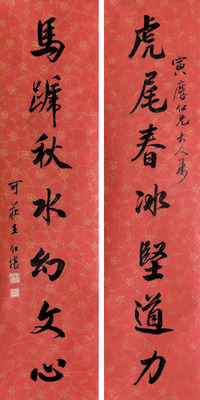 寅廎仁兄大人属
虎尾春冰堅道力
馬蹏秋水幻文心
可莊王仁堪